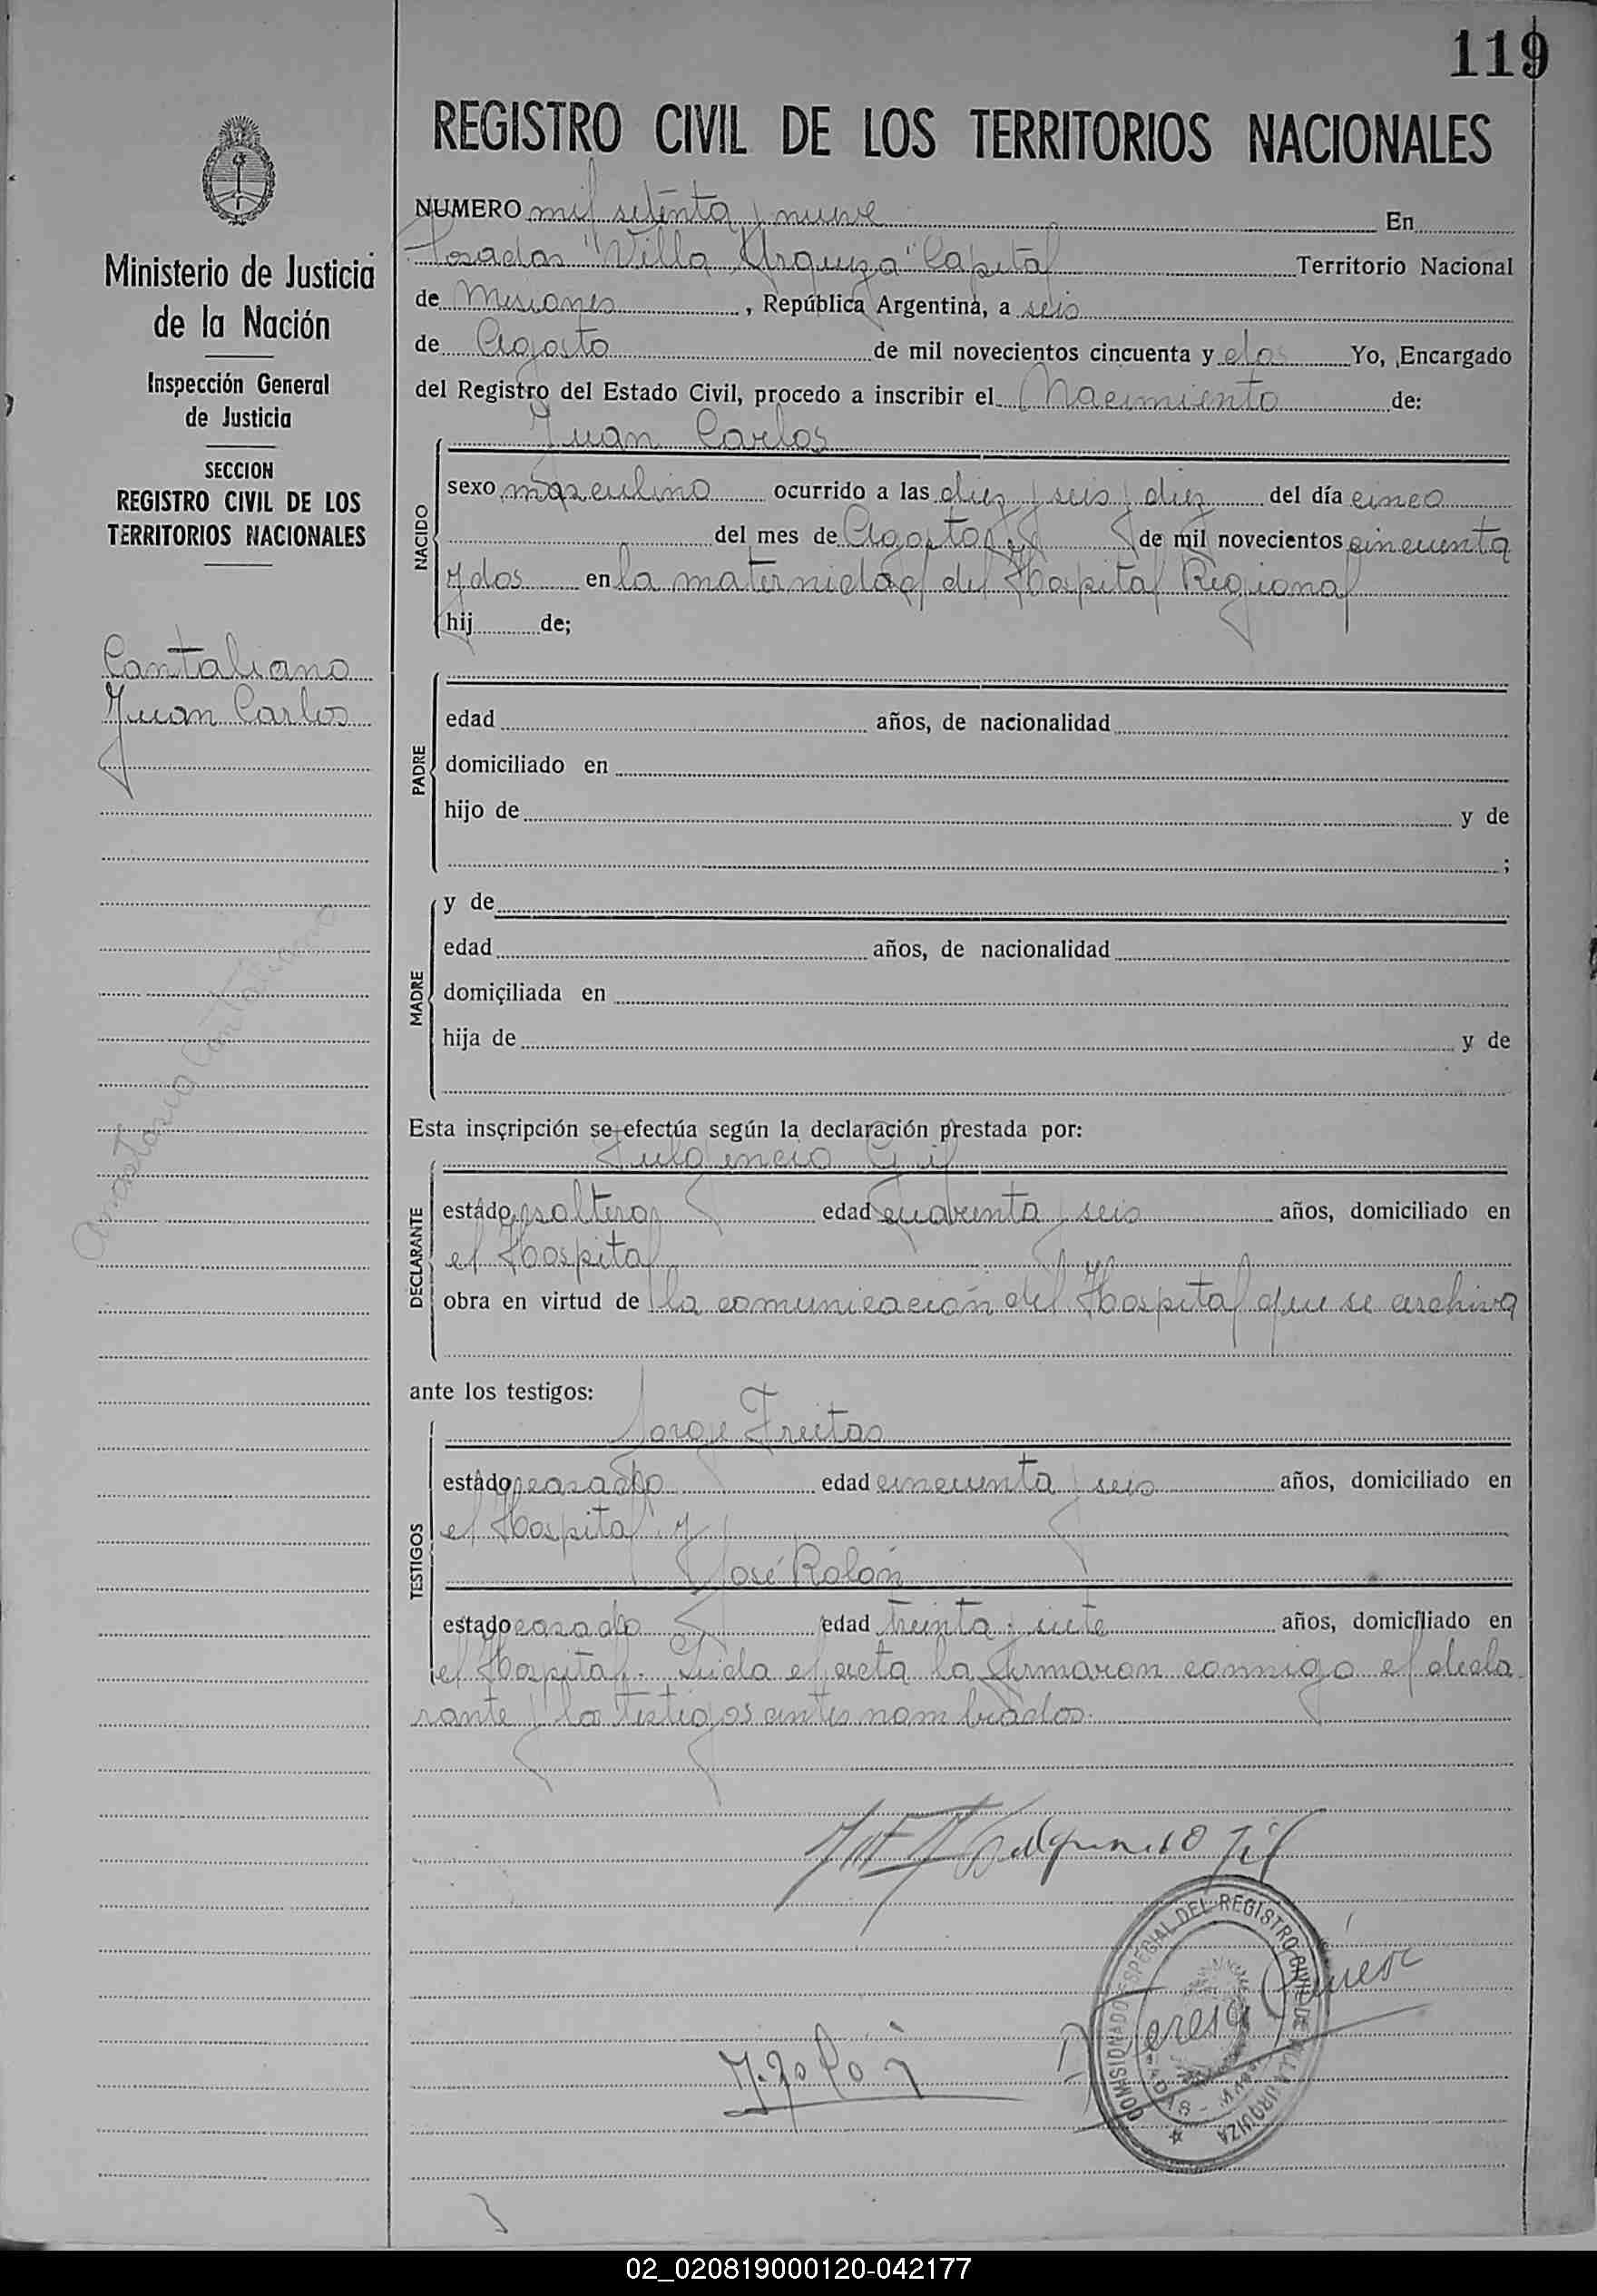 119
REGISTRO CIVIL DE LOS TERRITORIOS NACIONALES
Ministerio de Justicia
de la Nación
Inspección General
de Justicia
SECCION
REGISTRO CIVIL DE LOS
TERRITORIOS NACIONALES
Cantaliano
Juan Carlos
NUMERO mil setenta y nueve En
Posadas "Villa Urquiza" Capital Territorio Nacional
de Misiones, República Argentina, a seis
de Agosto de mil novecientos cincuenta y dos Yo, Encargado
del Registro del Estado Civil, procedo a inscribir el Nacimiento de:
NACIDO
Juan Carlos
sexo masculino ocurrido a las diez y seis y diez del día cinco
del mes de Agosto de mil novecientos cincuenta
y dos en la maternidad del Hospital Regional
hij de;
PADRE
edad años, de nacionalidad
domiciliado en
hijo de y de
;
MADRE
y de
edad años, de nacionalidad
domiciliada en
hija de y de
Esta inscripción se efectúa según la declaración prestada por:
DECLARANTE
Fulgencio Gil
estado soltero edad cuarenta y seis años, domiciliado en
el Hospital
obra en virtud de la comunicación del Hospital que se archiva
ante los testigos:
TESTIGOS
Jorge Freitas
estado casado edad cincuenta y seis años, domiciliado en
el Hospital y
José Rolón
estado casado edad treinta y siete años, domiciliado en
el Hospital. Leida el acta la firmaron conmigo el decla
rante y los testigos antes nombrados.
Gil
COMISIONADO ESPECIAL DEL REGISTRO CIVIL DE VILLA URQUIZA
Teresa
J. Rolón
02_020819000120-042177